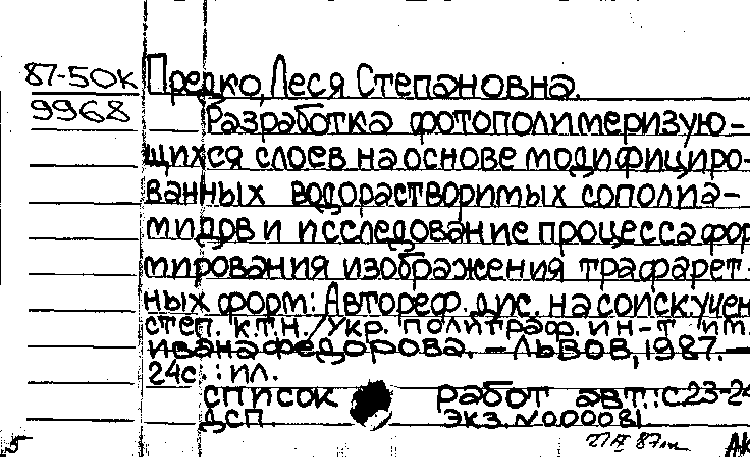 87-50К Предко, Леся Степановна.
9968 Разработка фотополимеризую-
щихся слоев на основе модифициро-
ванных водорастворимых сополиа-
мидов и исследование процесса фор
мирования изображения трафарет-
ных форм: Автореф. дис. на соиск. учен
степ. к.т.н. /Укр. полиграф. ин-т им.
Ивана Федорова. – Львов, 1987. –
24с. : ил.
список работ авт.: с.23-24
ДСП. экз. N000081